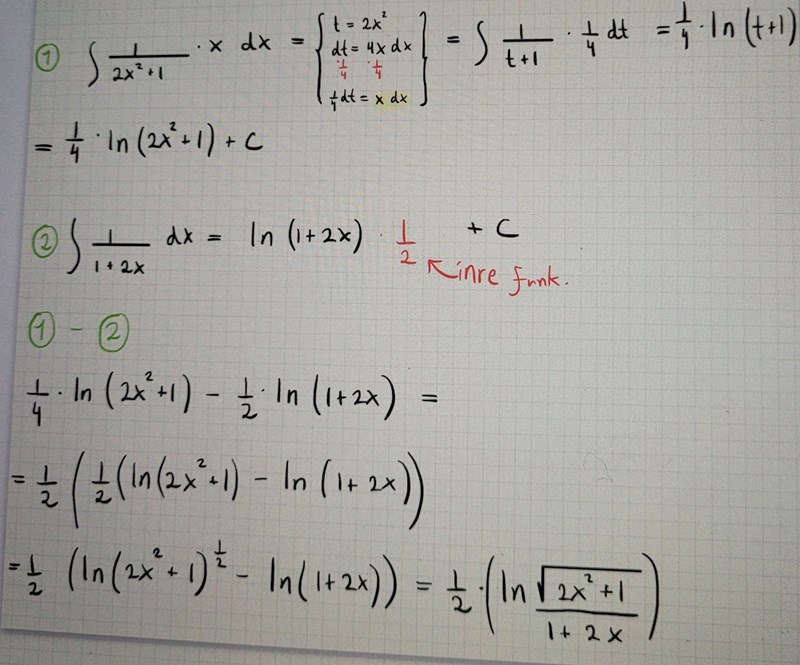 ① ∫ 1/(2x²+1) · x dx = { t = 2x²
dt = 4x dx
·1/4 ·1/4
1/4 dt = x dx } = ∫ 1/(t+1) · 1/4 dt = 1/4 · ln(t+1)
= 1/4 · ln(2x²+1) + C
② ∫ 1/(1+2x) dx = ln(1+2x) · 1/2 + C
↖ inre funk.
① - ②
1/4 · ln(2x²+1) - 1/2 · ln(1+2x) =
= 1/2 (1/2 (ln(2x²+1) - ln(1+2x))
= 1/2 (ln(2x²+1)^(1/2) - ln(1+2x)) = 1/2 · (ln √(2x²+1)/(1+2x))